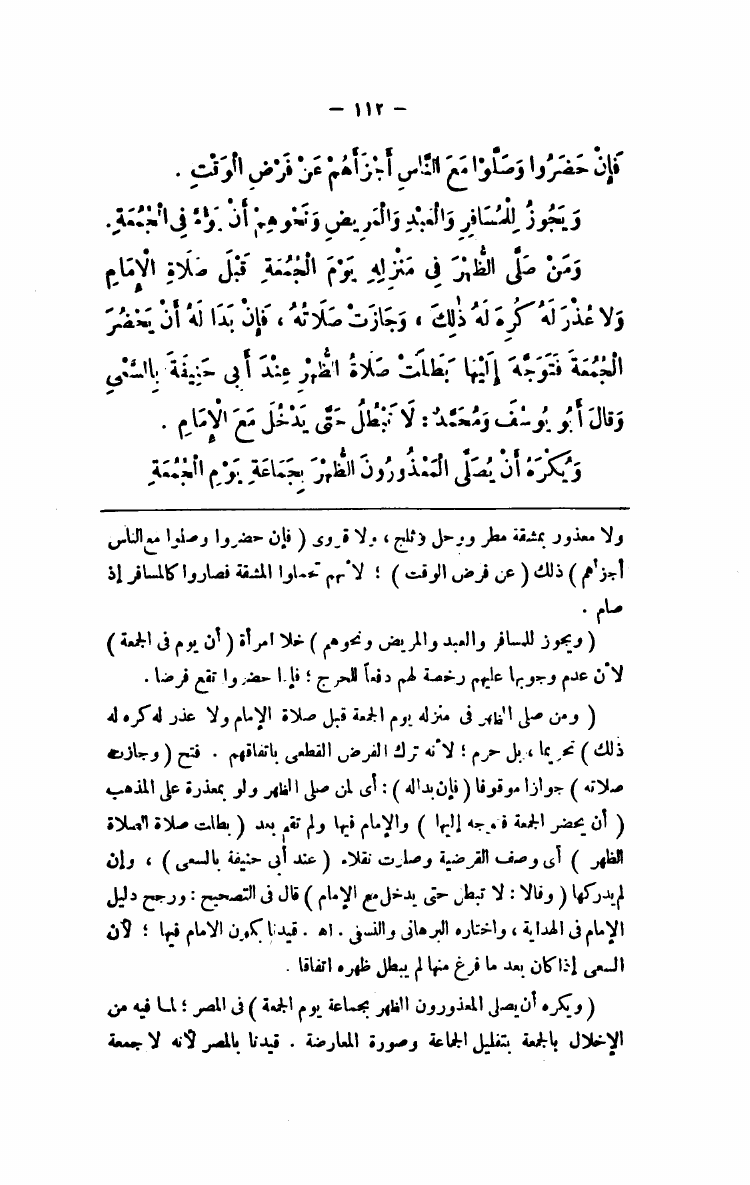 — ١١٢ —
فَإِنْ حَضَرُوا وَصَلَّوْا مَعَ النَّاسِ أَجْزَأَهُمْ عَنْ فَرْضِ الْوَقْتِ .
وَيَجُوزُ لِلْمُسَافِرِ وَالْعَبْدِ وَالْمَرِيضِ وَنَحْوِهِمْ أَنْ يَؤُمَّ فِى الْجُمُعَةِ.
وَمَنْ صَلَّى الظُّهْرَ فِى مَنْزِلِهِ يَوْمَ الْجُمُعَةِ قَبْلَ صَلَاةِ الْإِمَامِ
وَلَا عُذْرَ لَهُ كُرِهَ لَهُ ذٰلِكَ ، وَجَازَتْ صَلَاتُهُ ، فَإِنْ بَدَا لَهُ أَنْ يَحْضُرَ
الْجُمُعَةَ فَتَوَجَّهَ إِلَيْهَا بَطَلَتْ صَلَاةُ الظُّهْرِ عِنْدَ أَبِى حَنِيفَةَ بِالسَّعْىِ
وَقَالَ أَبُو يُوسُفَ وَمُحَمَّدٌ: لَا تَبْطُلُ حَتَّى يَدْخُلَ مَعَ الْإِمَامِ .
وَيُكْرَهُ أَنْ يُصَلِّىَ الْمَعْذُورُونَ الظُّهْرَ بِجَمَاعَةٍ يَوْمَ الْجُمُعَةِ
ولا معذور بمشقة مطر ووحل وثلج ، ولا قروى ( فإن حضروا وصلوا مع الناس
أجزأهم ) ذلك ( عن فرض الوقت ) ؛ لأنهم تحملوا المشقة فصاروا كالمسافر إذ
صام .
( ويجوز للمسافر والعبد والمريض ونحوهم ) خلا امرأة ( أن يوم فى الجمعة )
لأن عدم وجوبها عليهم رخصة لهم دفعاً للحرج ؛ فإذا حضروا تقع فرضا .
( ومن صلى الظهر فى منزله يوم الجمعة قبل صلاة الإمام ولا عذر له كره له
ذلك ) تحريما ، بل حرم ؛ لأنه ترك الفرض القطعى باتفاقهم . فتح ( وجازت
صلاته ) جوازا موقوفا ( فإن بدا له ) : أى لمن صلى الظهر ولو بمعذرة على المذهب
( أن يحضر الجمعة فتوجه إليها ) والإمام فيها ولم تقم بعد ( بطلت صلاة الصلاة
الظهر ) أى وصف الفرضية وصارت نفلا، ( عند أبى حنيفة بالسعى ) ، وإن
لم يدركها ( وقالا : لا تبطل حتى يدخل مع الإمام ) قال فى التصحيح : ورجح دليل
الإمام فى الهداية ، واختاره البرهانى والنسفى . اه . قيدنا بكون الامام فيها ؛ لأن
السعى إذا كان بعد ما فرغ منها لم يبطل ظهره اتفاقا .
( ويكره أن يصلى المعذورون الظهر بجماعة يوم الجمعة ) فى المصر ؛ لما فيه من
الإخلال بالجمعة بتقليل الجماعة وصورة المعارضة . قيدنا بالمصر لأنه لا جمعة